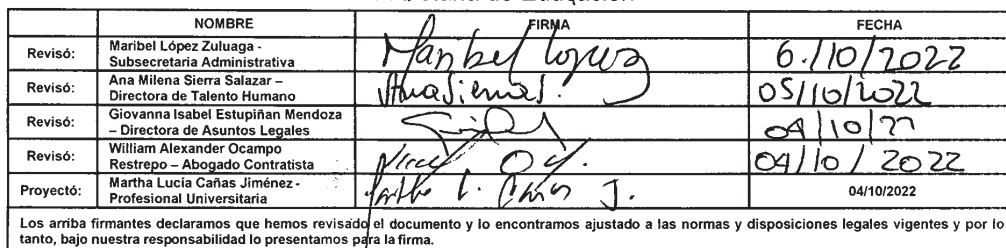 NOMBRE FIRMA FECHA
Revisó: Maribel López Zuluaga - Subsecretaria Administrativa Maribel López 6./10/2022
Revisó: Ana Milena Sierra Salazar – Directora de Talento Humano AnaSierraS. 05/10/2022
Revisó: Giovanna Isabel Estupiñan Mendoza – Directora de Asuntos Legales 04/10/22
Revisó: William Alexander Ocampo Restrepo – Abogado Contratista 04/10/2022
Proyectó: Martha Lucía Cañas Jiménez - Profesional Universitaria Martha L. Cañas J. 04/10/2022
Los arriba firmantes declaramos que hemos revisado el documento y lo encontramos ajustado a las normas y disposiciones legales vigentes y por lo
tanto, bajo nuestra responsabilidad lo presentamos para la firma.